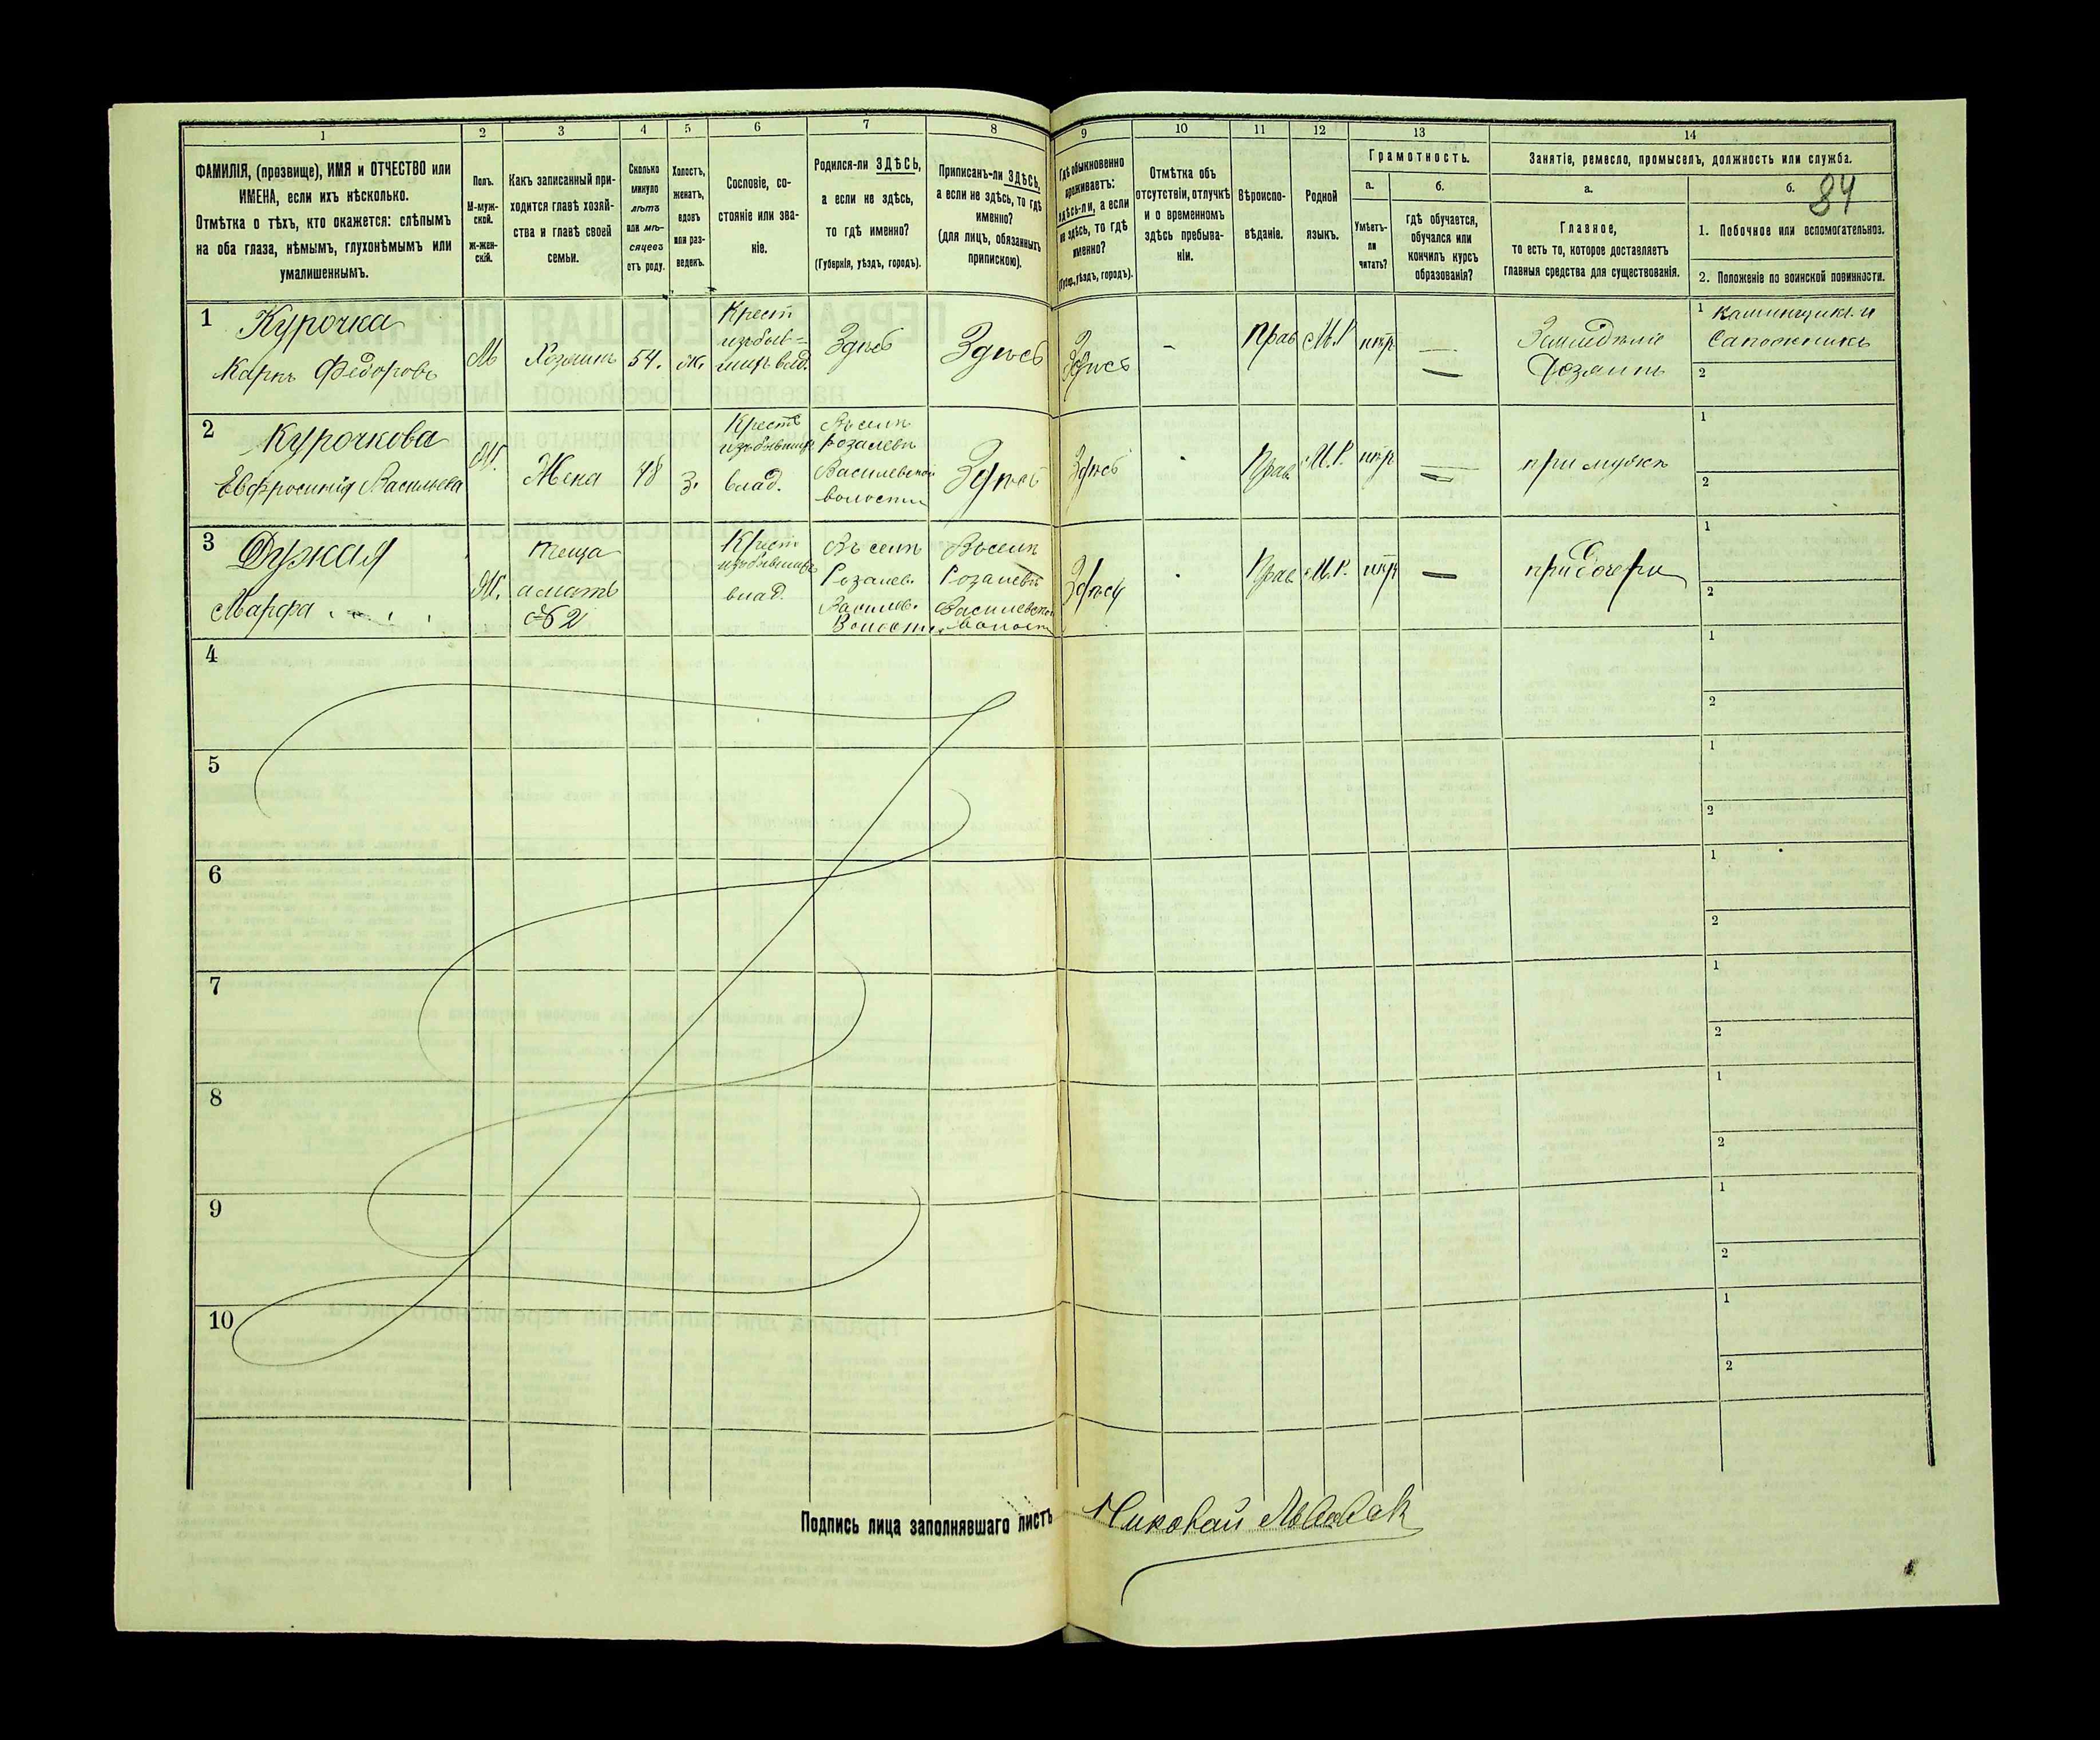 1
2
3
4
5
6
7
8
9
10
11
12
13
14
ФАМИЛІЯ, (прозвище), ИМЯ и ОТЧЕСТВО или
ИМЕНА, если ихъ нѣсколько.
Отмѣтка о тѣхъ, кто окажется: слѣпымъ
на оба глаза, нѣмымъ, глухонѣмымъ или
умалишеннымъ.
Полъ.
М-муж-
ской.
Ж-жен-
скій.
Какъ записанный при-
ходится главѣ хозяй-
ства и главѣ своей
семьи.
Сколько
минуло
лѣтъ
или мѣ-
сяцевъ
отъ роду.
Холостъ,
женатъ,
вдовъ
или раз-
веденъ.
Сословіе, со-
стояніе или зва-
ніе.
Родился-ли ЗДѢСЬ,
а если не здѣсь,
то гдѣ именно?
(Губернія, уѣздъ, городъ).
Приписанъ-ли ЗДѢСЬ,
а если не здѣсь, то гдѣ
именно?
(для лицъ, обязанныхъ
припискою).
Гдѣ обыкновенно
проживаетъ:
здѣсь-ли, а если
не здѣсь, то гдѣ
именно?
(Губер., уѣздъ, городъ).
Отмѣтка объ
отсутствіи, отлучкѣ
и о временномъ
здѣсь пребыва-
ніи.
Вѣроиспо-
вѣданіе.
Родной
языкъ.
Грамотность.
а.
б.
Умѣетъ-
ли
читать?
гдѣ обучается,
обучался или
кончилъ курсъ
образованія?
Занятіе, ремесло, промыселъ, должность или служба.
а.
б.
84
Главное,
то есть то, которое доставляетъ
главныя средства для существованія.
1. Побочное или вспомогательное.
2. Положеніе по воинской повинности.
1
Курочка
Карпъ Федоровъ
М
Хозяинъ
54.
ж.
Крест
изъ быв=
шихъ влад.
Здѣсь
Здѣсь
Здѣсь
-
Прав
М.Р
нѣтъ
—
Земледѣліе
Хозяинъ
1
Каменщикъ и
Сапожникъ
2
2
Курочкова
Евфросинія Васильева
Ж.
Жена
48
з.
Крестъ
изъ бывших
влад.
Въ селѣ
Розалевѣ
Василевской
волости
Здѣсь
Здѣсь
Прав
М.Р.
нѣтъ
—
при мужѣ
1
2
3
Дужая
Марфа
Ж.
теща
а мать
№2
Крест
изъ бывших
влад.
Въ селѣ
Розалев.
Василев.
Волости
Въ селѣ
Розалевѣ
Василевской
волости
Здѣсь
Прав
М.Р.
нѣтъ
—
при дочери
1
2
4
1
2
5
1
2
6
1
2
7
1
2
8
1
2
9
1
2
10
1
2
Подпись лица заполнявшаго листъ
Николай